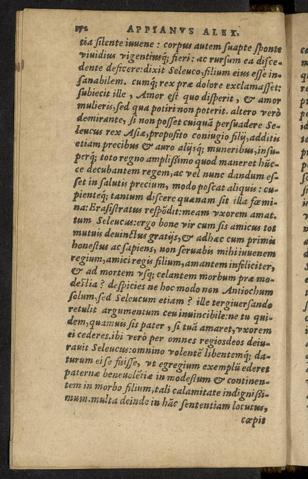 172 APPIANVS ALEX.
tia silente iuuene : corpus autem suapte sponte
viuidius vigentiusq́; fieri: ac rursum ea disce-
dente deficere: dixit Seleuco, filium eius esse in-
sanabilem. cumq́; rex præ dolore exclamasset:
subiecit ille, Amor est quo disperit, & amor
mulieris, sed qua potiri non poterit. altero verò
demirante, si non posset cuiquã persuadere Se-
leucus rex Asiæ, proposito coniugio filij, additis
etiam precibus & auro alijsq́; muneribus, insu-
perq́; toto regno amplissimo quod maneret hũc-
ce decubantem regem, ac vel nunc dandum es-
set in salutis precium, modo poscat aliquis : cu-
pienteq́; tantum discere quãnam sit illa fœmi-
na: Erasistratus respõdit: meam vxorem amat.
tum Seleucus: ergo bone vir cum sis amicus tot
mutuis deuinctus gratijs, & adhæc cum primis
honestus ac sapiens, non seruabis mihi iuuenem
regium, amici regis filium, amantem infeliciter,
& ad mortem vsq́; celantem morbum præ mo-
destia? despicies ne hoc modo non Antiochum
solum, sed Seleucum etiam? ille tergiuersando
retulit argumentum ceu inuincibile: ne tu qui-
dem, quamuis sis pater, si tuã amaret, vxorem
ei cederes. ibi verò per omnes regios deos deiu-
rauit Seleucus: omnino volentẽ libentemq́; da-
turum eise fuisse, vt egregium exemplũ ederet
paternæ beneuolẽtiæ in modestum & continen-
tem in morbo filium, tali calamitate indignissi-
mum. multa deinde in hãc sententiam locutus,
cœpit